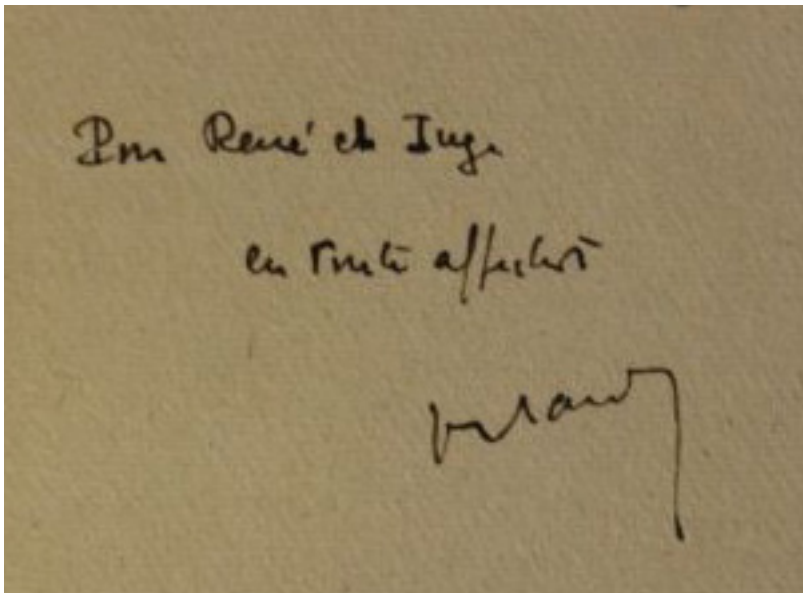 Pour René et Inge
en toute affection